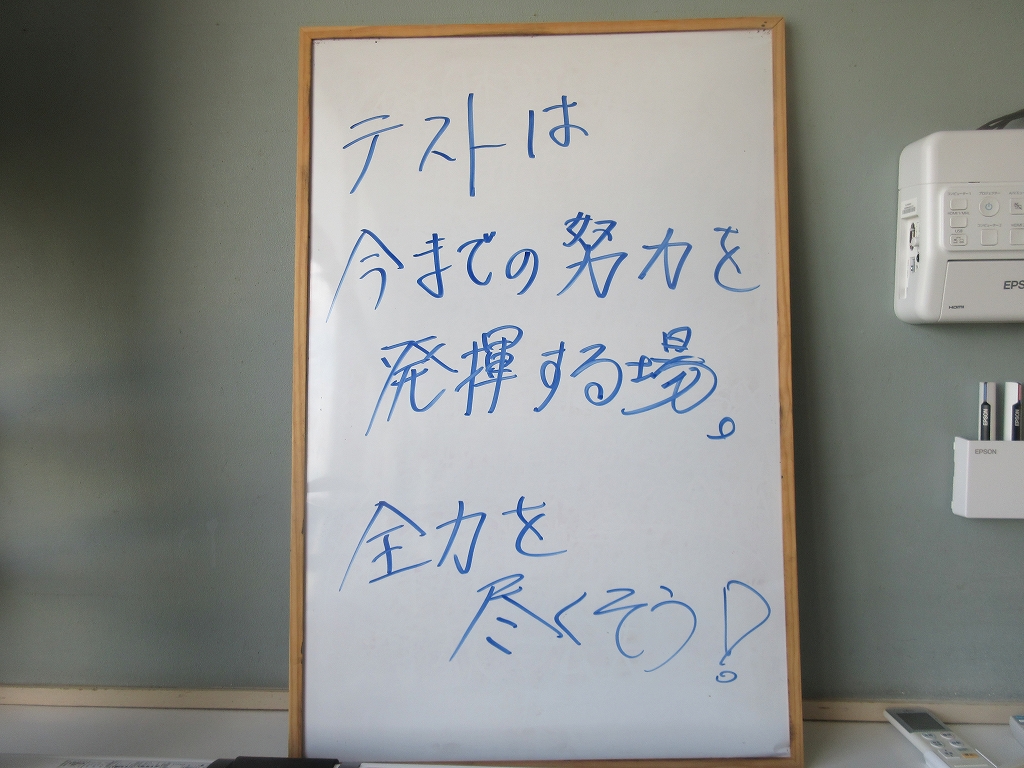 テストは
今までの努力を
発揮する場。
全力を
尽くそう!
EPS
HDMI
EPSON
EPSON
EPSON